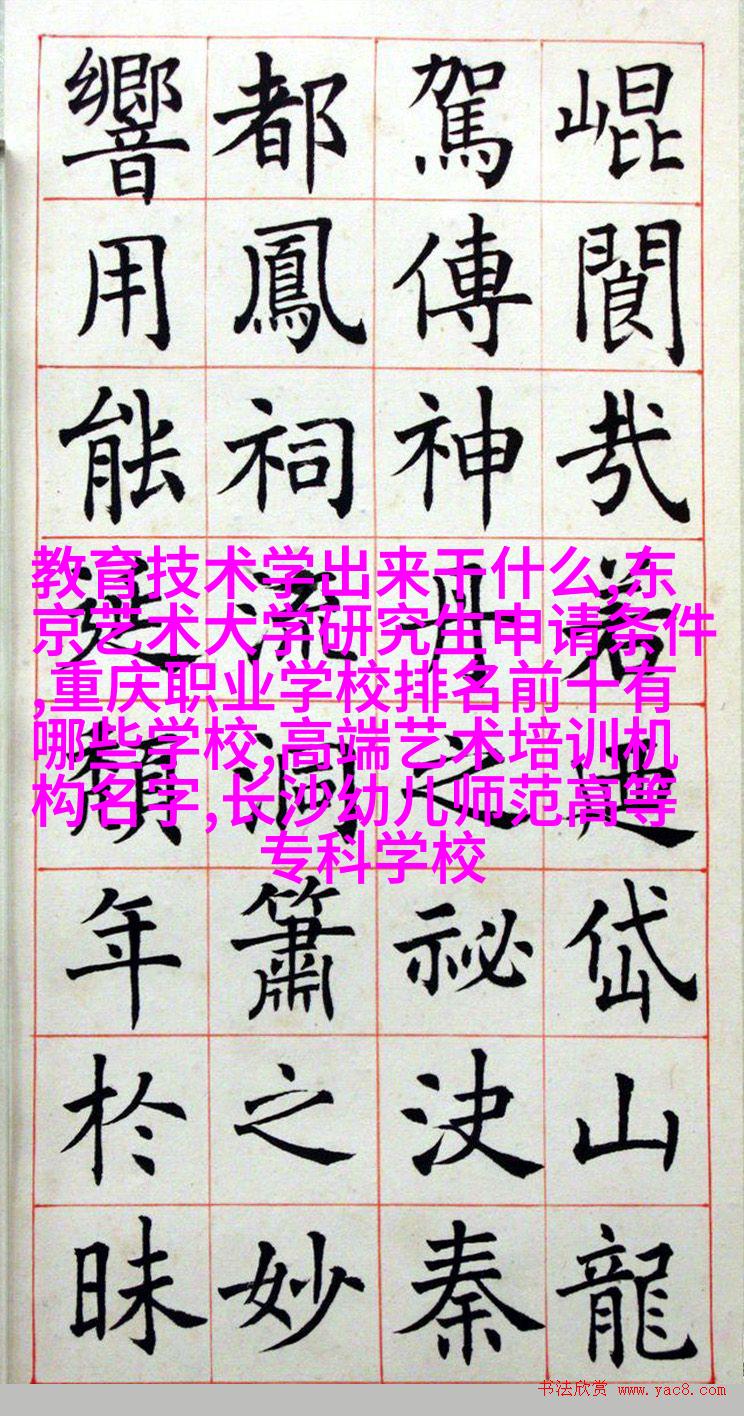 崐閬㢤若岱山龍
駕傳神丹之祕決秦
都鳳祠流洞簫之妙
響用能頹年於昧
教育技术学出来干什么,东
京艺术大学研究生申请条件
,重庆职业学校排名前十有
哪些学校,高端艺术培训机
构名字,长沙幼儿师范高等
专科学校
书法欣赏 www.yac8.com